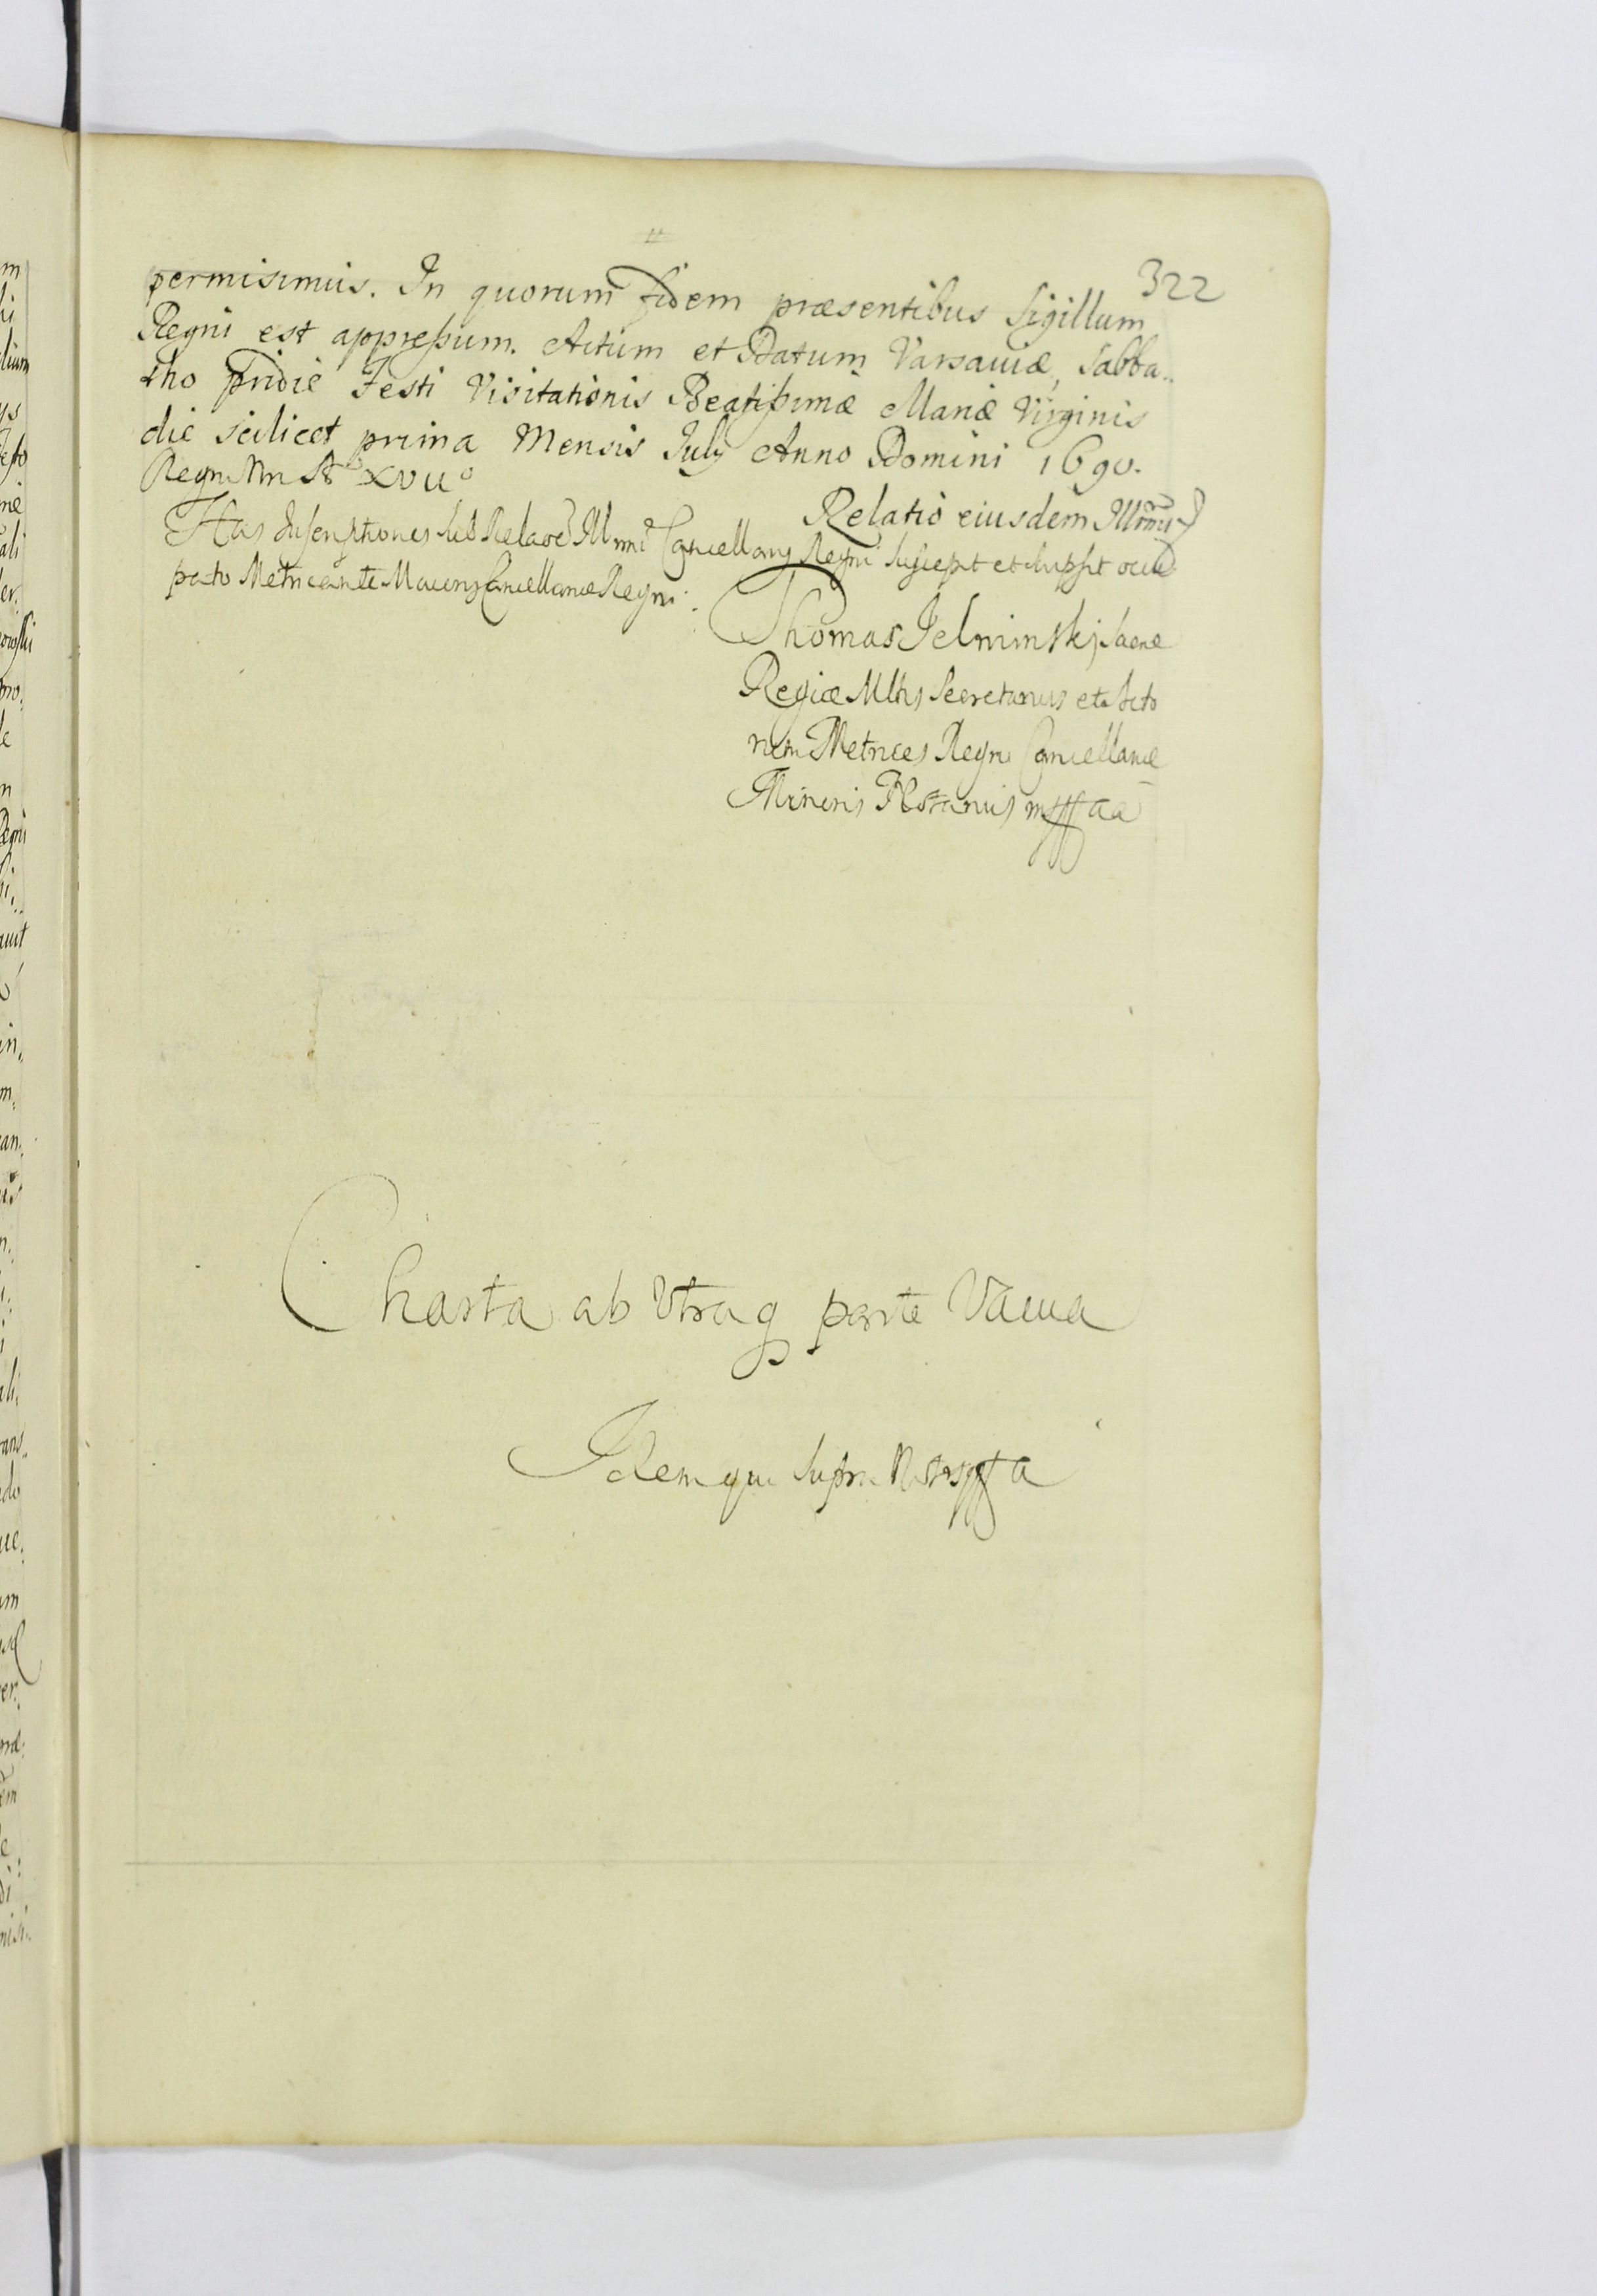 322
permisimus. In quorum fidem præsentibus Sigillum
Regni est appressum. Actum et Datum Varsaviæ, Sabba..
tho pridie Festi Visitationis Beatissimæ Mariæ Virginis
die scilicet prima Mensis Julij Anno Domini 1690.
Regni Nri Ao XVIIo
Relatio eiusdem Illmi
Has Inscriptiones sub Relaōē Illmi Cancellarij Regni suscepit et
Metricante Cancellariæ Regni.
Thomas Jelminskj Sacræ
Regiæ Mttis Secretarius et Acto
rum Metrices Regni Cancellariæ
Minoris Notarius mpp
Charta ab Utraq parte Vacua
Idem qui supra